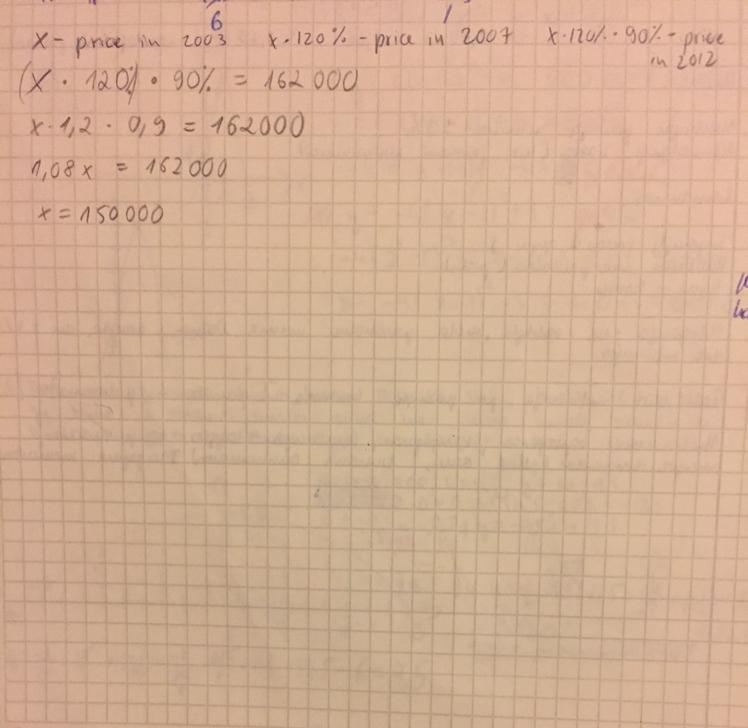 6
x - price in 2003 x·120% - price in 2007 x·120%·90% - price in 2012
(x · 120%) · 90% = 162 000
x·1,2 · 0,9 = 162000
1,08x = 162000
x = 150000